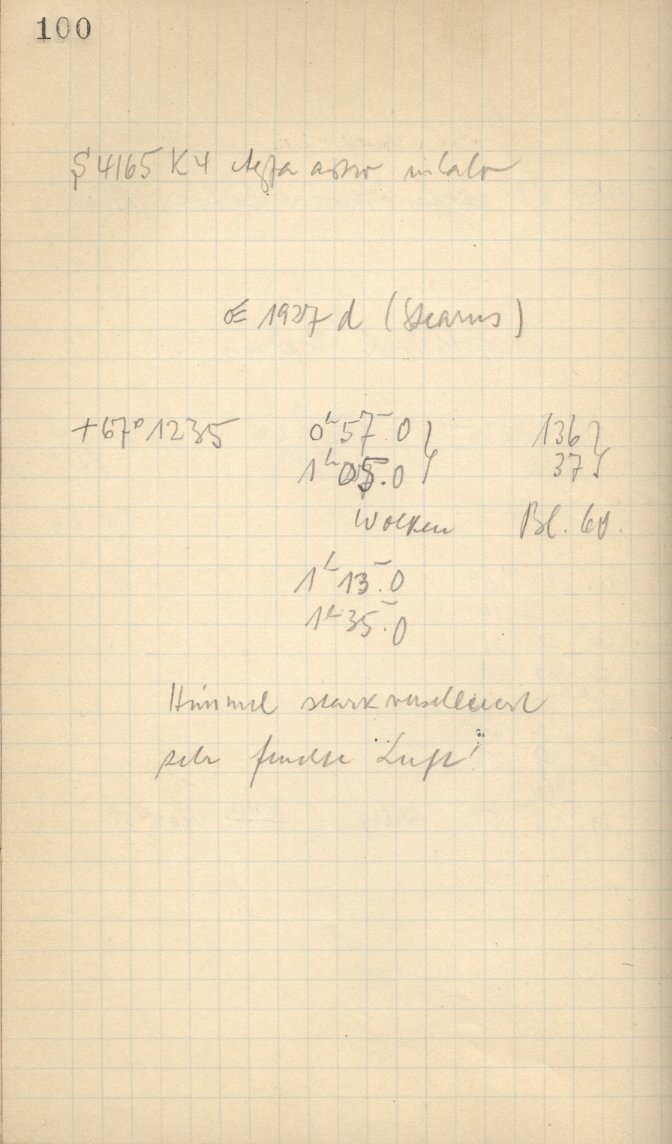 100
S 4165 K4 Agfa astro inlalo
☄ 1927 d (Stearns)
+67° 1235 0h 57m.0 } 136 }
1h 05.0 } 37 }
Wolken Bl. 60.
1h 13m.0
1h 35m.0
Himmel stark verschleiert
sehr feuchte Luft!